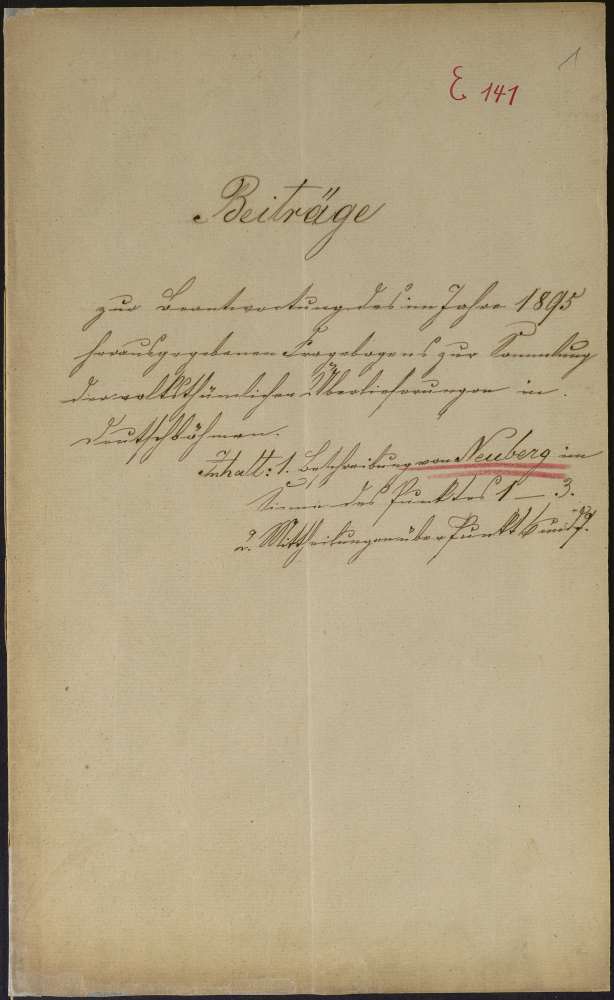 1
E 141
Beiträge
zur Beantwortung des im Jahre 1895
herausgegebenen Fragebogens zur Sammlung
der volksthümlichen Überlieferungen in
Deutschböhmen.
Inhalt: 1. Beschreibung von Neuberg im
Sinne des Punktes 1 – 3.
2. Mittheilungen über Punkt 6 und